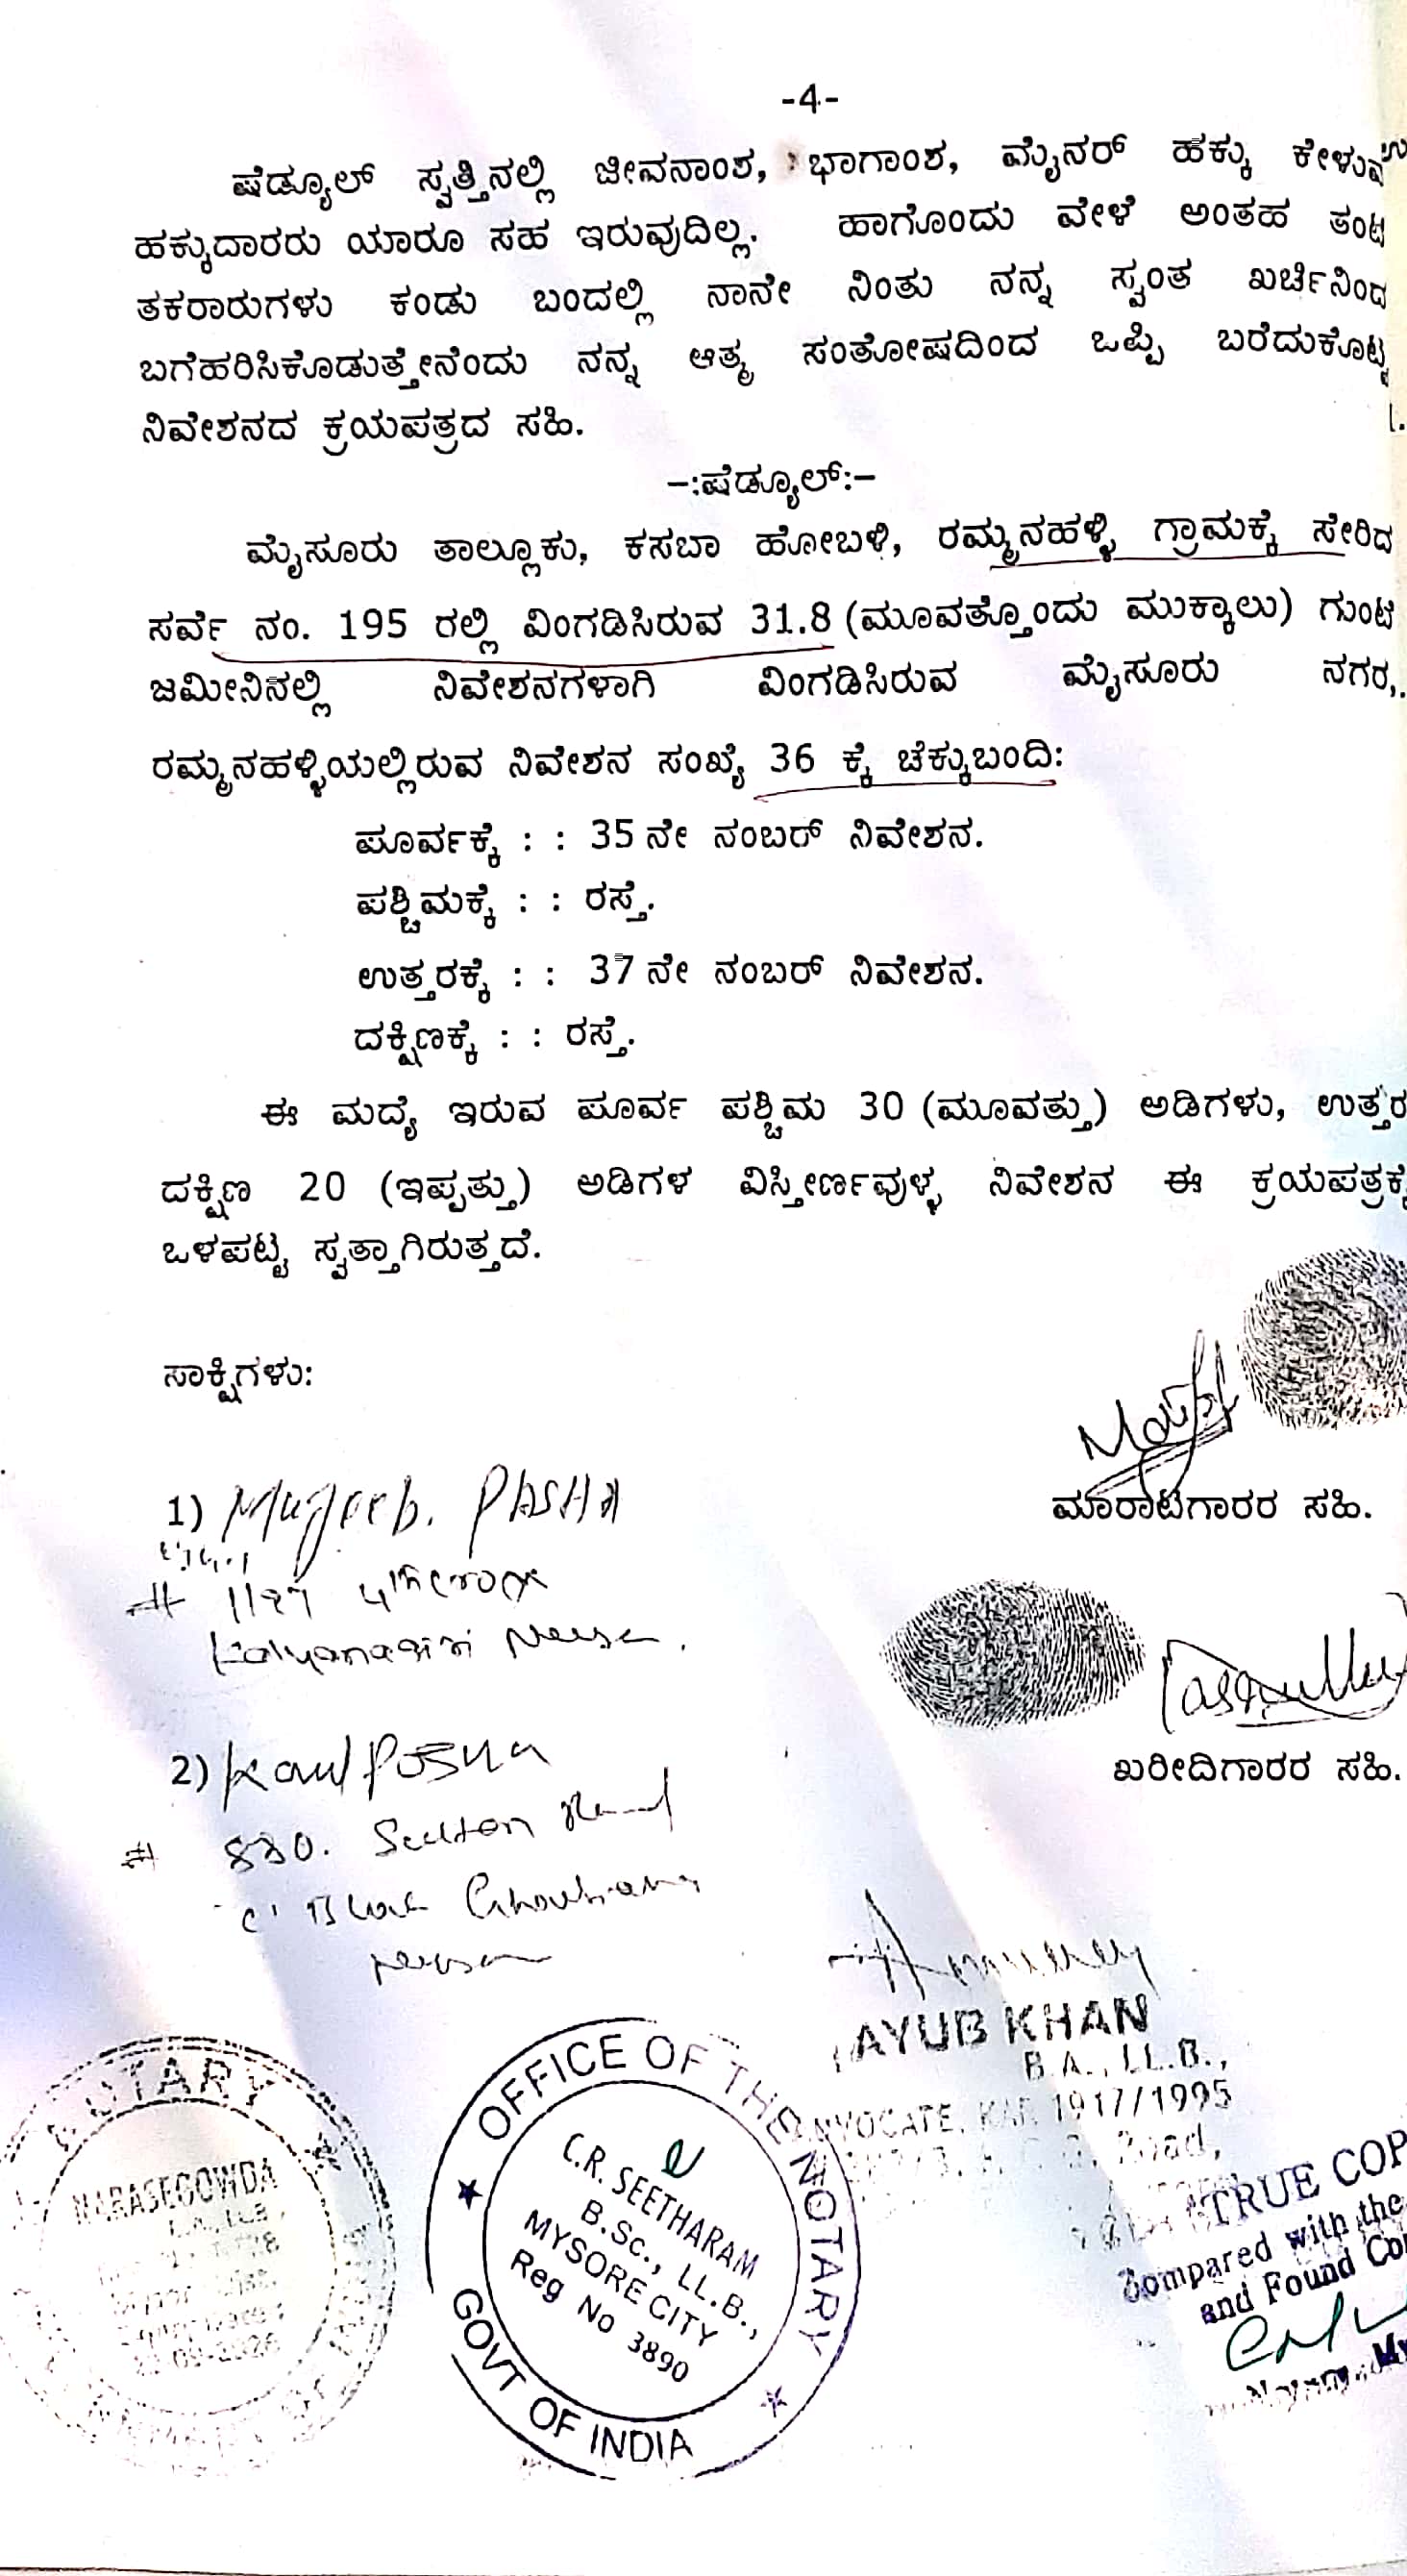 -4-
ಷೆಡ್ಯೂಲ್ ಸ್ವತ್ತಿನಲ್ಲಿ ಜೀವನಾಂಶ, ಭಾಗಾಂಶ, ಮೈನರ್ ಹಕ್ಕು ಕೇಳುವ
ಹಕ್ಕುದಾರರು ಯಾರೂ ಸಹ ಇರುವುದಿಲ್ಲ. ಹಾಗೊಂದು ವೇಳೆ ಅಂತಹ ತಂಟೆ
ತಕರಾರುಗಳು ಕಂಡು ಬಂದಲ್ಲಿ ನಾನೇ ನಿಂತು ನನ್ನ ಸ್ವಂತ ಖರ್ಚಿನಿಂದ
ಬಗೆಹರಿಸಿಕೊಡುತ್ತೇನೆಂದು ನನ್ನ ಆತ್ಮ ಸಂತೋಷದಿಂದ ಒಪ್ಪಿ ಬರೆದುಕೊಟ್ಟ
ನಿವೇಶನದ ಕ್ರಯಪತ್ರದ ಸಹಿ.
-:ಷೆಡ್ಯೂಲ್:-
ಮೈಸೂರು ತಾಲ್ಲೂಕು, ಕಸಬಾ ಹೋಬಳಿ, ರಮ್ಮನಹಳ್ಳಿ ಗ್ರಾಮಕ್ಕೆ ಸೇರಿದ
ಸರ್ವೆ ನಂ. 195 ರಲ್ಲಿ ವಿಂಗಡಿಸಿರುವ 31.8 (ಮೂವತ್ತೊಂದು ಮುಕ್ಕಾಲು) ಗುಂಟೆ
ಜಮೀನಿನಲ್ಲಿ ನಿವೇಶನಗಳಾಗಿ ವಿಂಗಡಿಸಿರುವ ಮೈಸೂರು ನಗರ,
ರಮ್ಮನಹಳ್ಳಿಯಲ್ಲಿರುವ ನಿವೇಶನ ಸಂಖ್ಯೆ 36 ಕ್ಕೆ ಚೆಕ್ಕುಬಂದಿ:
ಪೂರ್ವಕ್ಕೆ : : 35 ನೇ ನಂಬರ್ ನಿವೇಶನ.
ಪಶ್ಚಿಮಕ್ಕೆ : : ರಸ್ತೆ.
ಉತ್ತರಕ್ಕೆ : : 37 ನೇ ನಂಬರ್ ನಿವೇಶನ.
ದಕ್ಷಿಣಕ್ಕೆ : : ರಸ್ತೆ.
ಈ ಮದ್ಯೆ ಇರುವ ಪೂರ್ವ ಪಶ್ಚಿಮ 30 (ಮೂವತ್ತು) ಅಡಿಗಳು, ಉತ್ತರ
ದಕ್ಷಿಣ 20 (ಇಪ್ಪತ್ತು) ಅಡಿಗಳ ವಿಸ್ತೀರ್ಣವುಳ್ಳ ನಿವೇಶನ ಈ ಕ್ರಯಪತ್ರಕ್ಕೆ
ಒಳಪಟ್ಟ ಸ್ವತ್ತಾಗಿರುತ್ತದೆ.
ಸಾಕ್ಷಿಗಳು:
1) Mujeeb. PASHA
ಮಾರಾಟಗಾರರ ಸಹಿ.
# 4th cross
Kalyanagiri
2)
ಖರೀದಿಗಾರರ ಸಹಿ.
# 830.
AYUB KHAN
B.A., LL.B.,
1917/1995
NOTARY
NARASEGOWDA
OFFICE OF THE NOTARY
C.R. SEETHARAM
B.Sc., LL.B.,
MYSORE CITY
Reg No 3890
GOVT OF INDIA
TRUE COP
Compared with the
and Found Co